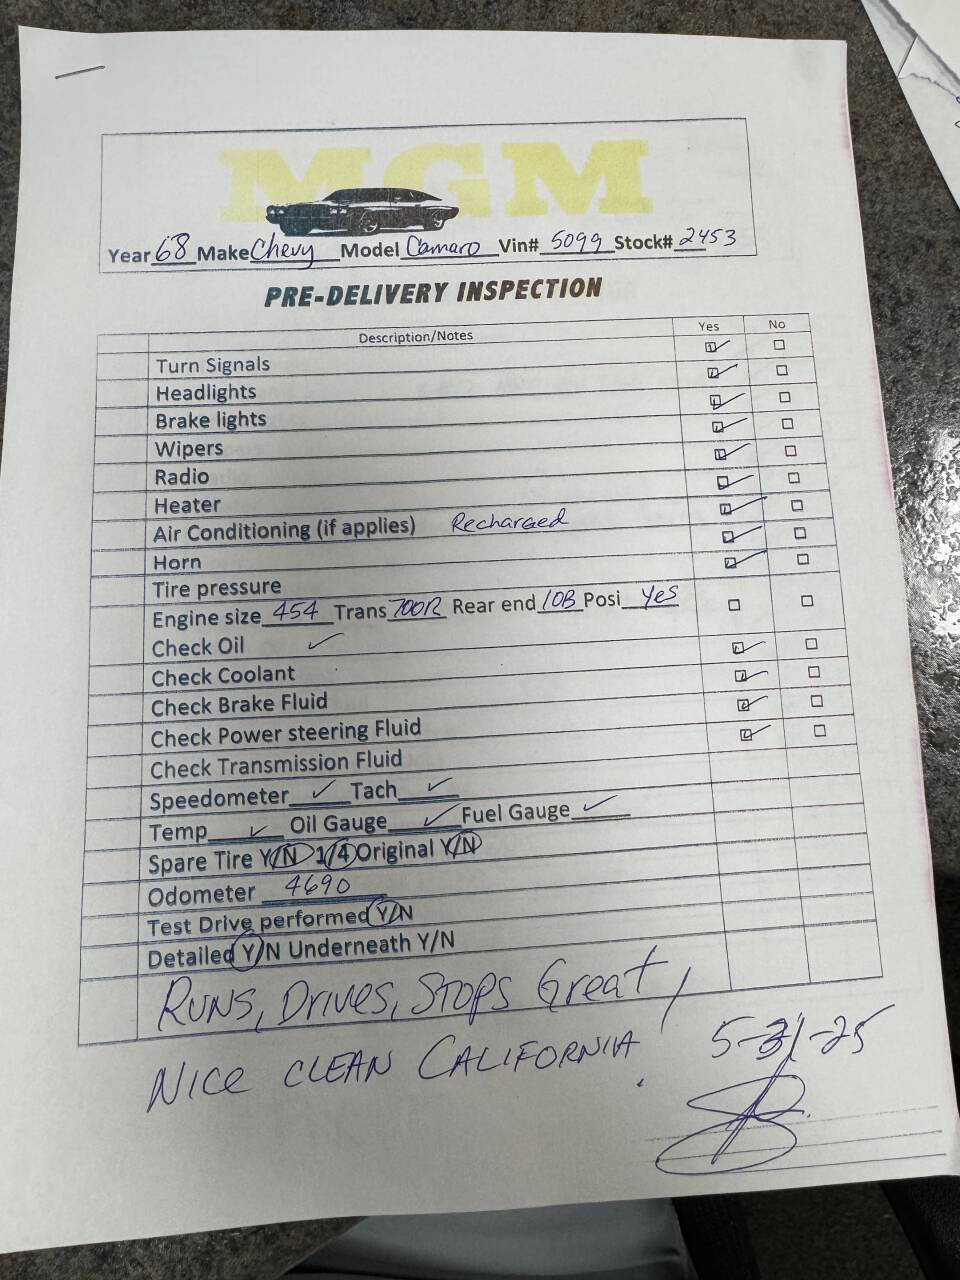 MGM
Year 68 Make Chevy Model Camaro Vin# 5099 Stock# 2453
PRE-DELIVERY INSPECTION
Description/Notes Yes No
Turn Signals
Headlights
Brake lights
Wipers
Radio
Heater
Air Conditioning (if applies) Recharged
Horn
Tire pressure
Engine size 454 Trans 700R Rear end 10B Posi Yes
Check Oil
Check Coolant
Check Brake Fluid
Check Power steering Fluid
Check Transmission Fluid
Speedometer Tach
Temp Oil Gauge Fuel Gauge
Spare Tire Y/N 1/4 Original Y/N
Odometer 4690
Test Drive performed Y/N
Detailed Y/N Underneath Y/N
RUNS, DRIVES, STOPS Great,
NICE CLEAN CALIFORNIA! 5-31-25